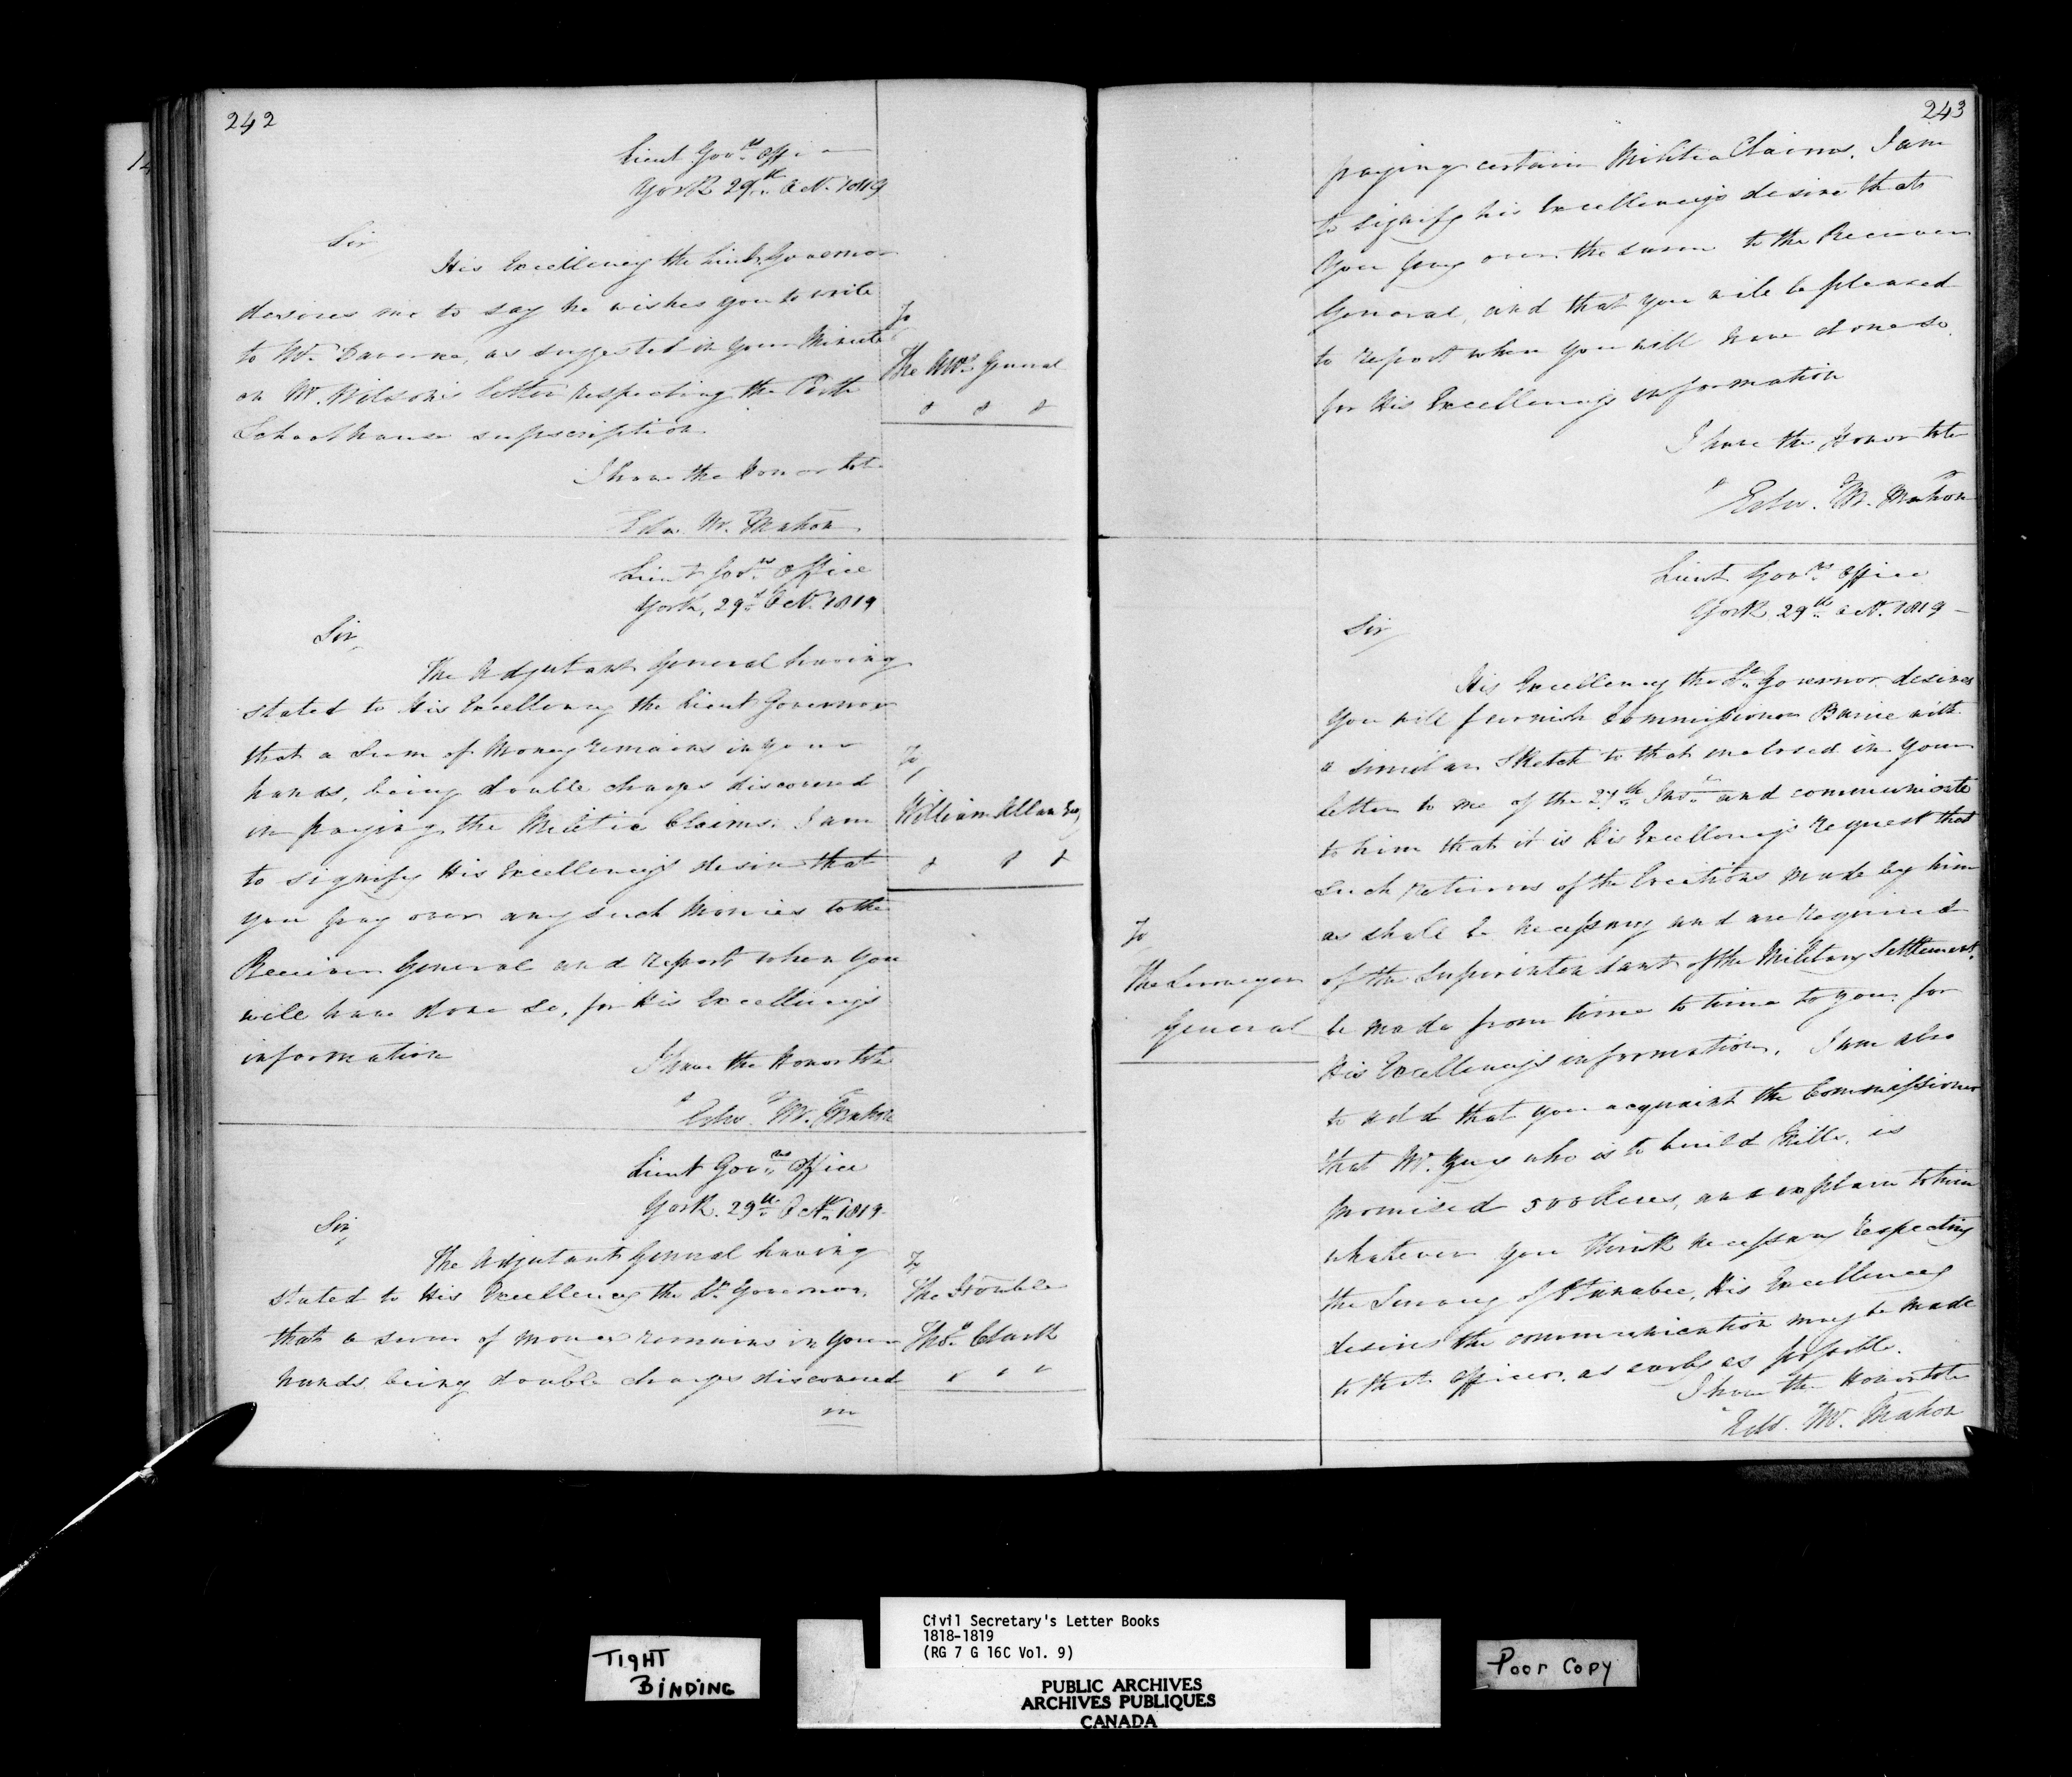 242
Lieut Govrs Office
York 29th Oct. 1819
Sir
His Excellency the Lieut Governor
desires me to say he wishes you to write
to Mr. Daverne, as suggested in your Minute
on Mr. Wilson's letter respecting the Perth
Schoolhouse subscription
I have the Honor to be
Edw. McMahon
To
The Atty General
Lieut Govrs Office
York, 29th Oct. 1819
Sir,
The Adjutant General having
stated to His Excellency the Lieut Governor
that a Sum of Money remains in your
hands, being double charges discovered
in paying the Militia Claims. I am
to signify His Excellency's desire that
you pay over any such Monies to the
Receiver General and report when you
will have done so, for His Excellency's
information
I have the Honor to be
Edw. McMahon
To,
William Allan Esq,
Lieut Govrs Office
York. 29th Oct. 1819
Sir,
The Adjutant General having
stated to His Excellency the Lt Governor,
that a sum of money remains in your
hands being double charges discovered
in
To
The Honble
Thos. Clark
243
paying certain Militia Claims. I am
to signify his Excellency's desire that
you pay over the same to the Receiver
General, and that you will be pleased
to report when you will have done so.
for His Excellency's information
I have the Honor to be
Edw. McMahon
Lieut Govrs Office
York 29th Oct. 1819
Sir
His Excellency the Lt Governor desires
you will furnish Commissioner Barrie with
a similar Sketch to that enclosed in your
letter to me of the 27th Inst. and communicate
to him that it is His Excellency's request that
such returns of the locations made by him
as shall be necessary and are required
of the Superintendant of the Military Settlement,
be made from time to time to you for
His Excellency's information. I am also
to add that you acquaint the Commissioner
that Mr. who is to build Mills, is
promised 500 Acres, and explain to him
whatever you think necessary respecting
the Survey of Otanabee, His Excellency
desires the communication may be made
to that Officer as early as possible.
I have the Honor to be
Edw. McMahon
To
The Surveyor
General
TIGHT
BINDING
Civil Secretary's Letter Books
1818-1819
(RG 7 G 16C Vol. 9)
PUBLIC ARCHIVES
ARCHIVES PUBLIQUES
CANADA
Poor Copy